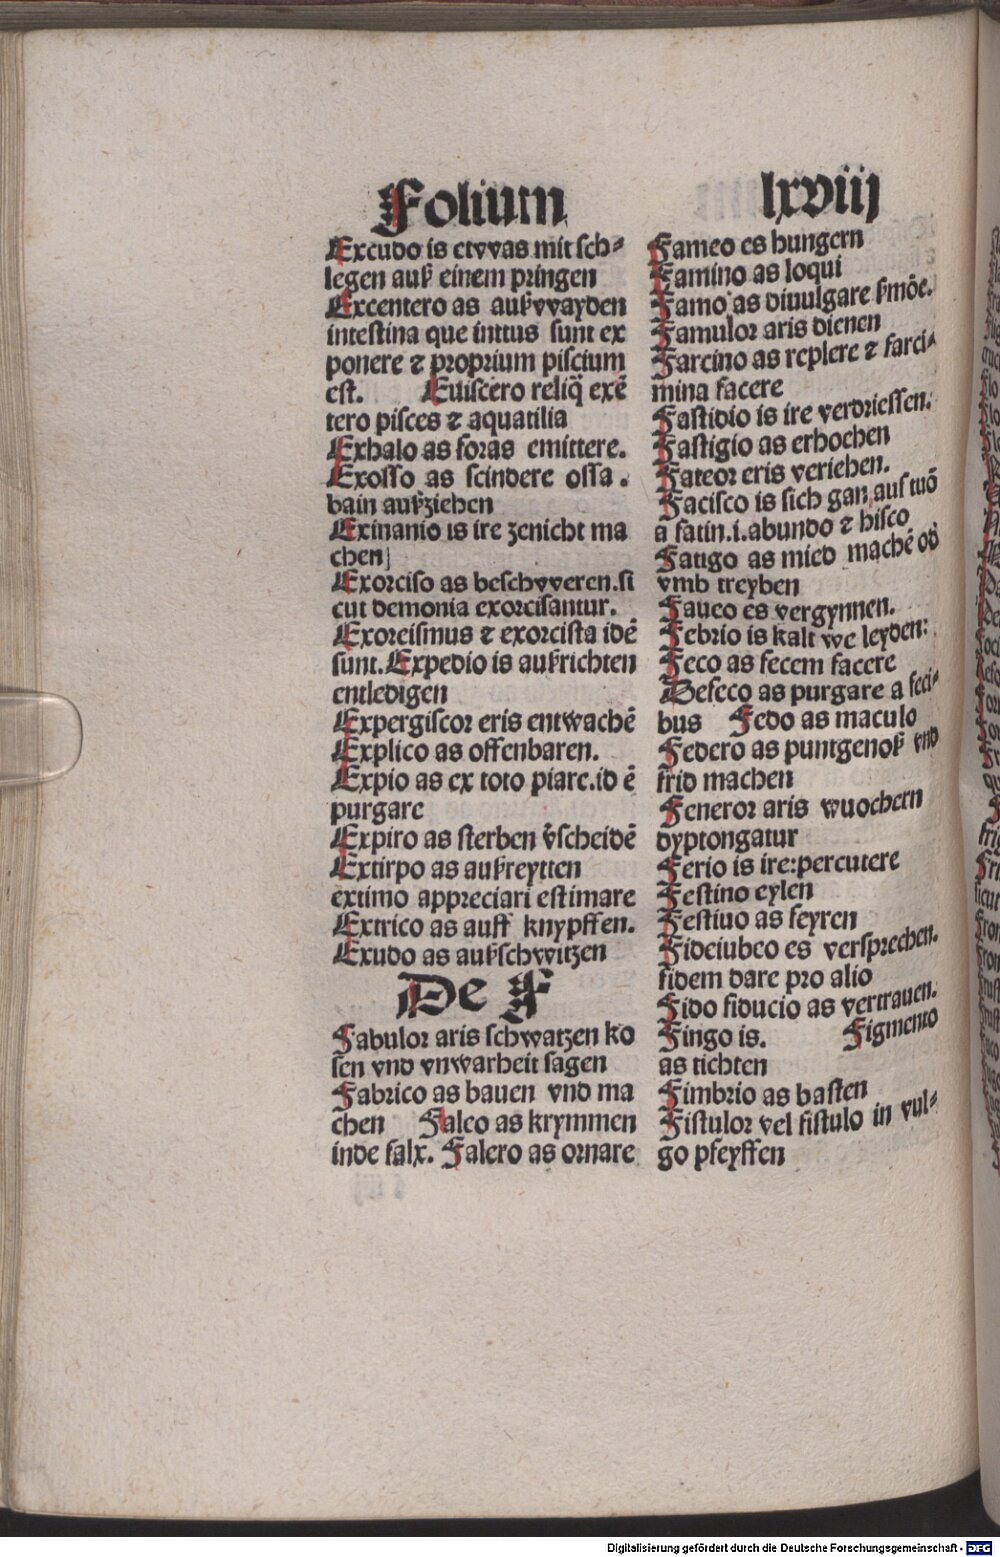 Folium lxviij
Excudo is etvvas mit sch⸗
legen auß einem pringen
Excentero as außvvayden
intestina que inttus sunt ex
ponere ⁊ proprium piscium
est. Euiscero reliq̃ exẽ
tero pisces ⁊ aquatilia
Exhalo as foras emittere.
Exosso as scindere ossa.
bain außziehen
Exinanio is ire zenicht ma
chen
Exorciso as beschvveren.si
cut demonia exorcisantur.
Exorcismus ⁊ exorcista idẽ
sunt. Expedio is außrichten
entledigen
Expergiscor eris entwachẽ
Explico as offenbaren.
Expio as ex toto piare.id ẽ
purgare
Expiro as sterben v̄scheidẽ
Extirpo as außreytten
extimo appreciari estimare
Extrico as auff knypffen.
Exudo as außschwitzen
De F
Fabulor aris schwatzen ko
sen vnd vnwarheit sagen
Fabrico as bauen vnd ma
chen Falco as krymmen
inde falx. Falero as ornare
Fameo es hungern
Famino as loqui
Famo as diuulgare ßmõe.
Famulor aris dienen
Farcino as replere ⁊ farci⸗
mina facere
Fastidio is ire verdriessen.
Fastigio as erhochen
Fateor eris veriehen.
Facisco is sich gan auf tuõ
a fatin.i.abundo ⁊ hisco
Fatigo as mied machẽ od̄
vmb treyben
Faueo es vergynnen.
Febrio is kalt we leyden:
Feco as fecem facere
Defeco as purgare a feci⸗
bus Fedo as maculo
Federo as puntgenoß vnd
frid machen
Feneror aris wuochern
dyptongatur
Ferio is ire:percutere
Festino eylen
Festiuo as feyren
Fideiubeo es versprechen.
fidem dare pro alio
Fido fiducio as vertrauen.
Fingo is. Figmento
as tichten
Fimbrio as basten
Fistulor vel fistulo in vul⸗
go pfeyffen
Digitalisierung gefördert durch die Deutsche Forschungsgemeinschaft - DFG